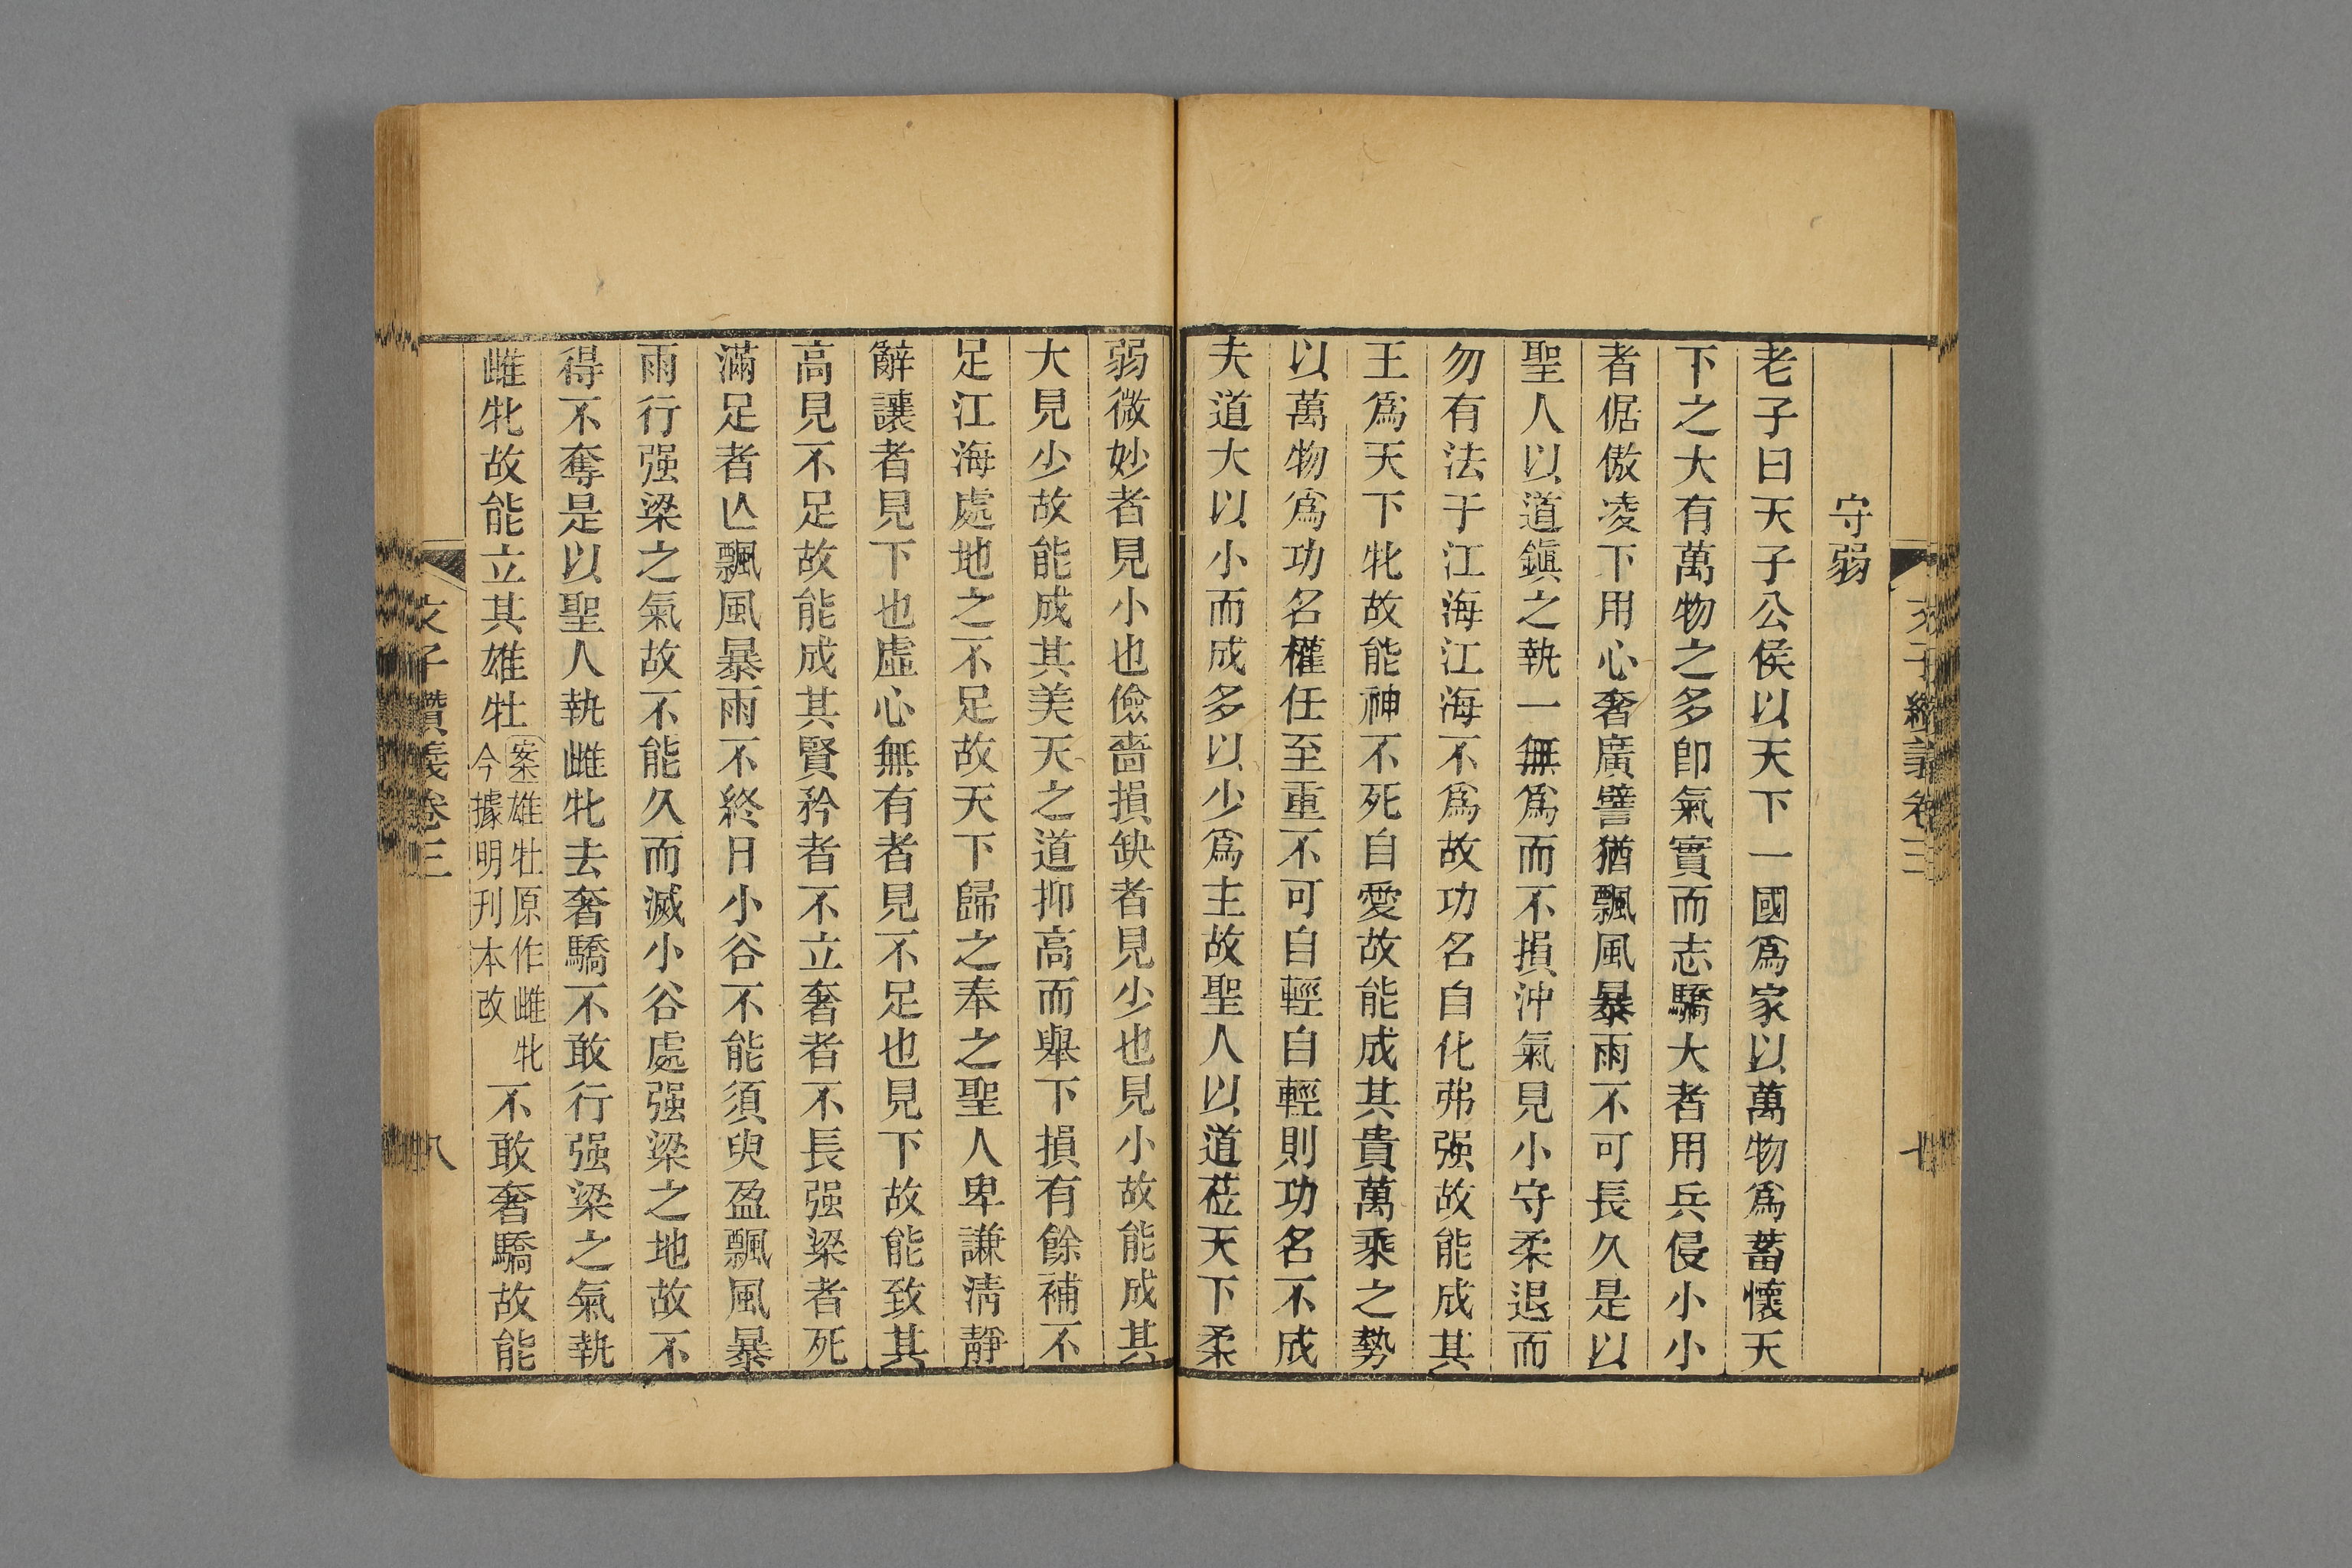 守弱
老子曰天子公侯以天下一國爲家以萬物爲蓄懷天
下之大有萬物之多卽氣實而志驕大者用兵侵小小
者倨傲凌下用心奢廣譬猶飄風暴雨不可長久是以
聖人以道鎭之執一無爲而不損沖氣見小守柔退而
勿有法于江海江海不爲故功名自化弗强故能成其
王爲天下牝故能神不死自愛故能成其貴萬乘之勢
以萬物爲功名權任至重不可自輕自輕則功名不成
夫道大以小而成多以少爲主故聖人以道莅天下柔
弱微妙者見小也儉嗇損缺者見少也見小故能成其
大見少故能成其美天之道抑高而舉下損有餘補不
足江海處地之不足故天下歸之奉之聖人卑謙淸靜
辭讓者見下也虛心無有者見不足也見下故能致其
高見不足故能成其賢矜者不立奢者不長强梁者死
滿足者亾飄風暴雨不終日小谷不能須臾盈飄風暴
雨行强梁之氣故不能久而滅小谷處强梁之地故不
得不奪是以聖人執雌牝去奢驕不敢行强梁之氣執
雌牝故能立其雄牡案雄牡原作雌牝今據明刊本改不敢奢驕故能
文子纘義卷三
八